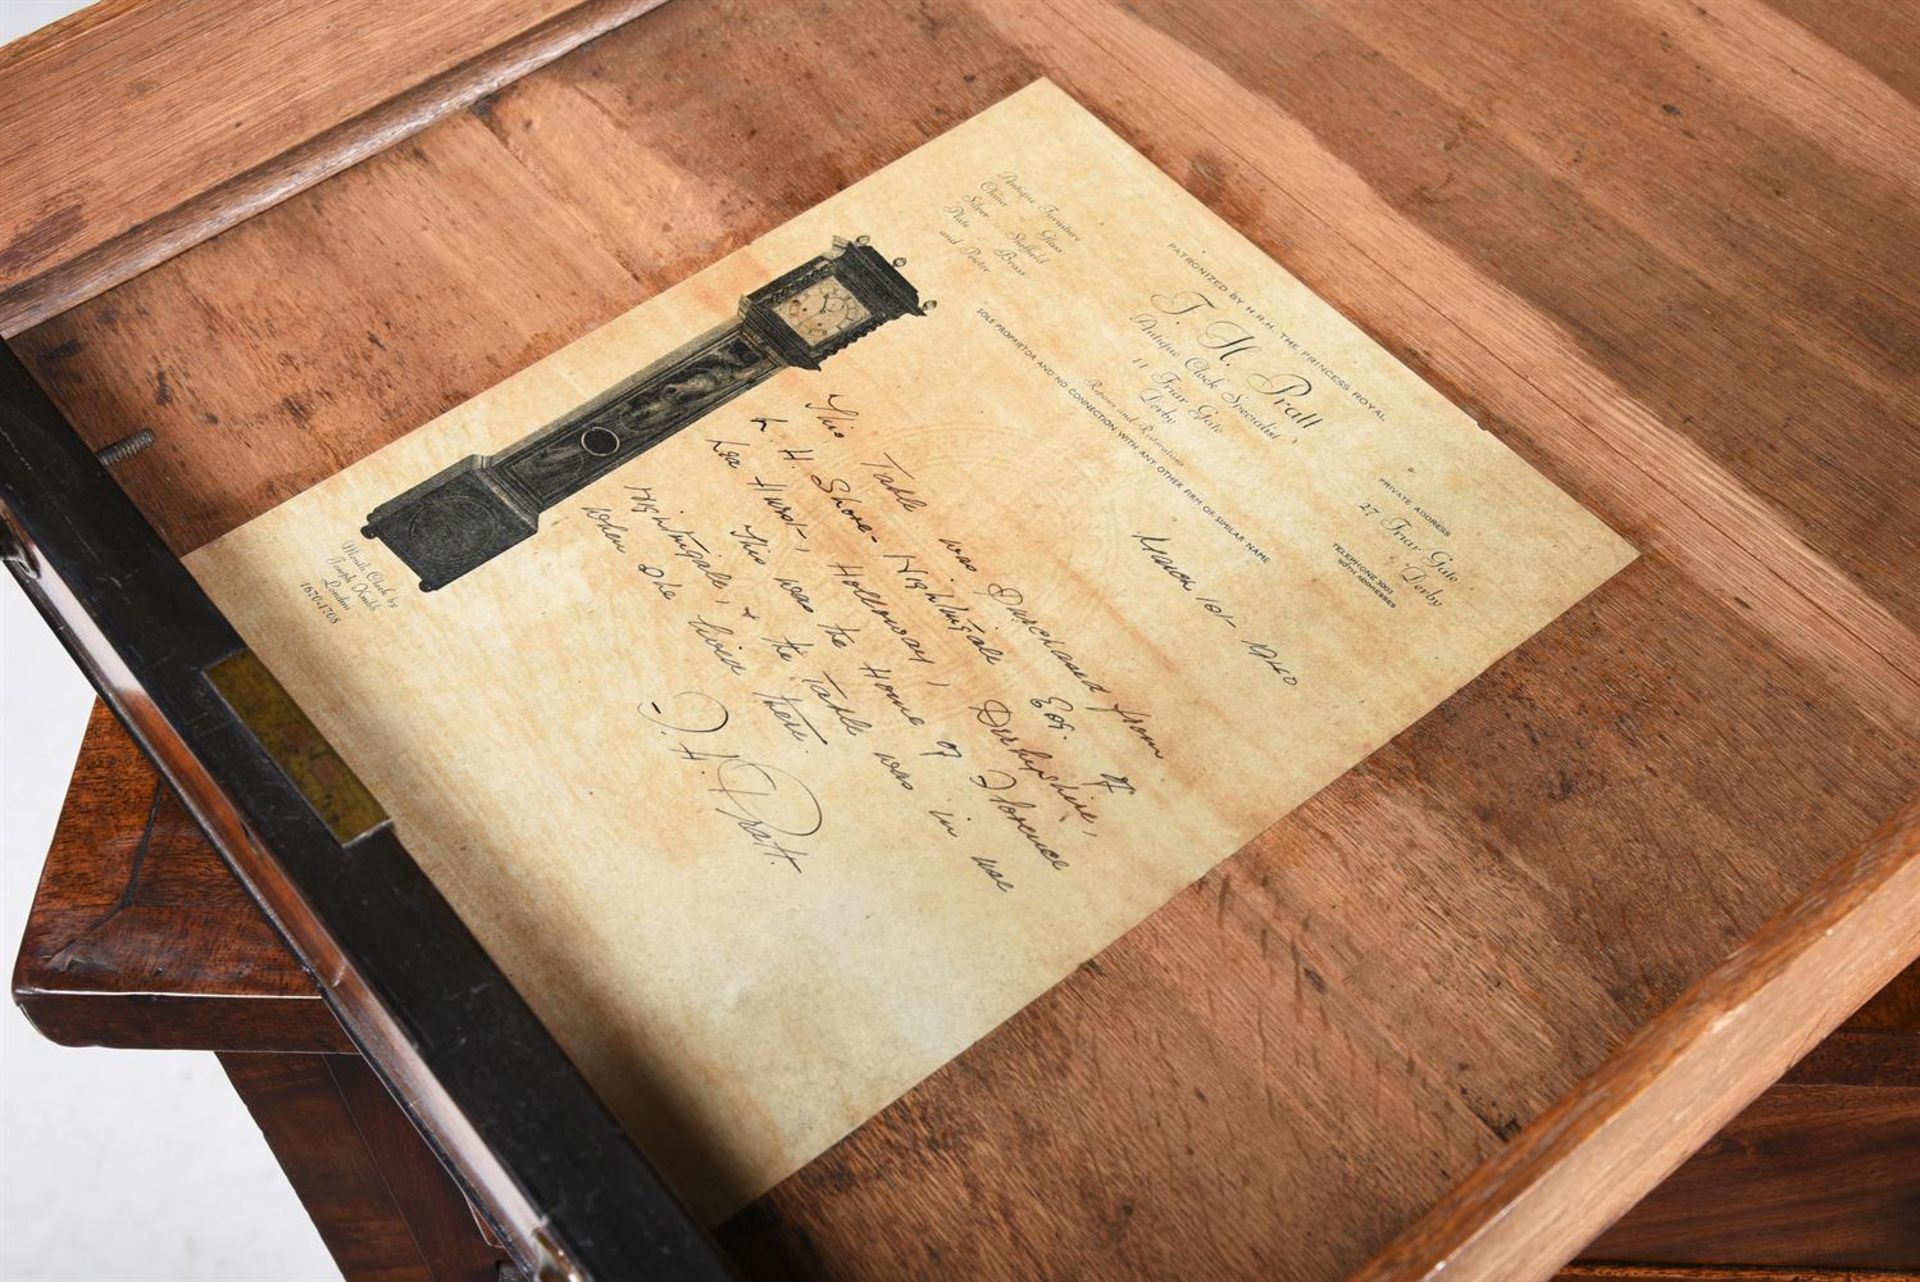 PATRONIZED BY H.R.H. THE PRINCESS ROYAL
Antique Furniture
China & Glass
Silver Sheffield
Plate Brass
and Pewter
T. H. Pratt
Antique Clock Specialist
11 Friar Gate
Derby
Repairs and Restorations
SOLE PROPRIETOR AND NO CONNECTION WITH ANY OTHER FIRM OF SIMILAR NAME
PRIVATE ADDRESS
27 Friar Gate
Derby
TELEPHONE 3001
BOTH ADDRESSES
March 1st 1940
This Table was Purchased from
L. H. Shore-Nightingale Esq. of
Lea Hurst, Holloway, Derbyshire,
This was the Home of Florence
Nightingale, & the Table was in use
when she lived there.
T. H. Pratt.
Month Clock by
Joseph Knibb
London
1670-1708